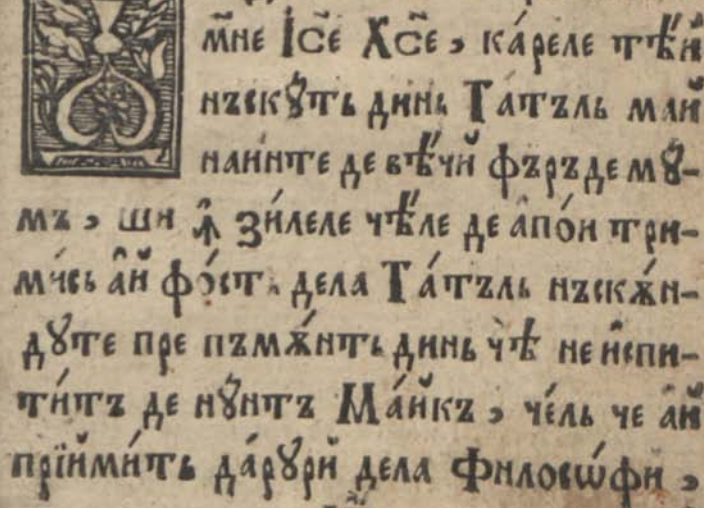 мⷩ҇не І҆с҃е Хс҃е , ка́реле тѣй
нъскꙋ́ть динь Та́тъль май
наинте де вѣ́чй фъръ де мꙋ-
мъ , ши ꙟ҆ зи́леле чѣ́ле де апо́и три-
ми́сь а҆й фо́сть дела Та́тъль нъскѫ́н-
дꙋте пре пъмѫ́нть динь чѣ неи҆спи-
ти́тъ де нꙋ́нтъ Ма́йкъ , че́ль че ай
прїими́ть да́рꙋри дела Филосѡ́фи ,